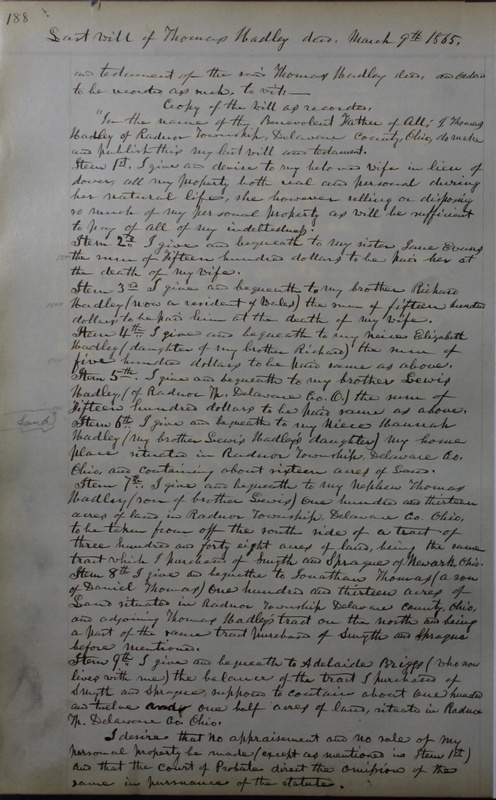 188
Last will of Thomas Hadley decd. March 9th 1865.
and testament of the said Thomas Hadley decd. and ordered
to be recorded as such, to wit:—
Coopy of the will as recorded.
"In the name of the Benevolent Father of All; I Thomas
Hadley of Radnor Township, Delaware County, Ohio, do make
and publish this my last will and testament.
Item 1st. I give and devise to my beloved wife in lieu of
dower, all my property both real and personal during
her natural life, she however selling or disposing
so much of my personal property as will be sufficient
to pay of all of my indebtedness.
Item 2d. I give and bequeath to my sister Jane Evans
the sum of Fifteen hundred dollars to be paid her at
the death of my wife.
Item 3d I give and bequeath to my brother Richard
Hadley (now a resident of Wales) the sum of fifteen hundred
dollars to be paid him at the death of my wife.
Item 4th I give and bequeath to my niece Elizabeth
Hadley (daughter of my brother Richard) the sum of
five hundred dollars to be paid same as above.
Item 5th. I give and bequeath to my brother Lewis
Hadley (of Radnor Tp. Delaware Co. O.) the sum of
Fifteen hundred dollars to be paid same as above.
Item 6th I give and bequeath to my niece Hannah
Hadley (my brother Lewis Hadley's daughter) my home
place situated in Radnor Township, Delaware Co.
Ohio, and containing about sixteen acres of Land.
Item 7th. I give and bequeath to my nephew Thomas
Hadley (son of brother Lewis) One hundred and thirteen
acres of land in Radnor Township Delaware Co. Ohio,
to be taken from off the south side of a tract of
three hundred and forty eight acres of land, being the same
tract which I purchased of Smyth and Sprague of Newark Ohio.
Item 8th I give and bequeathe to Jonathan Thomas (a son
of Daniel Thomas) One hundred and thirteen acres of
Land situated in Radnor Township Delaware County, Ohio,
and adjoining Thomas Hadley's tract on the north and being
a part of the same tract purchased of Smyth and Sprague
before mentioned.
Item 9th I give and bequeath to Adelaide Briggs (who now
lives with me) the balance of the tract I purchased of
Smyth and Sprague, supposed to contain about one hundred
and twelve and one half acres of land, situate in Radnor
Tp. Delaware Co Ohio.
I desire that no appraisement and no sale of my
personal property be made (except as mentioned in Item 1st)
and that the court of Probate direct the omission of the
same in pursuance of the statute.